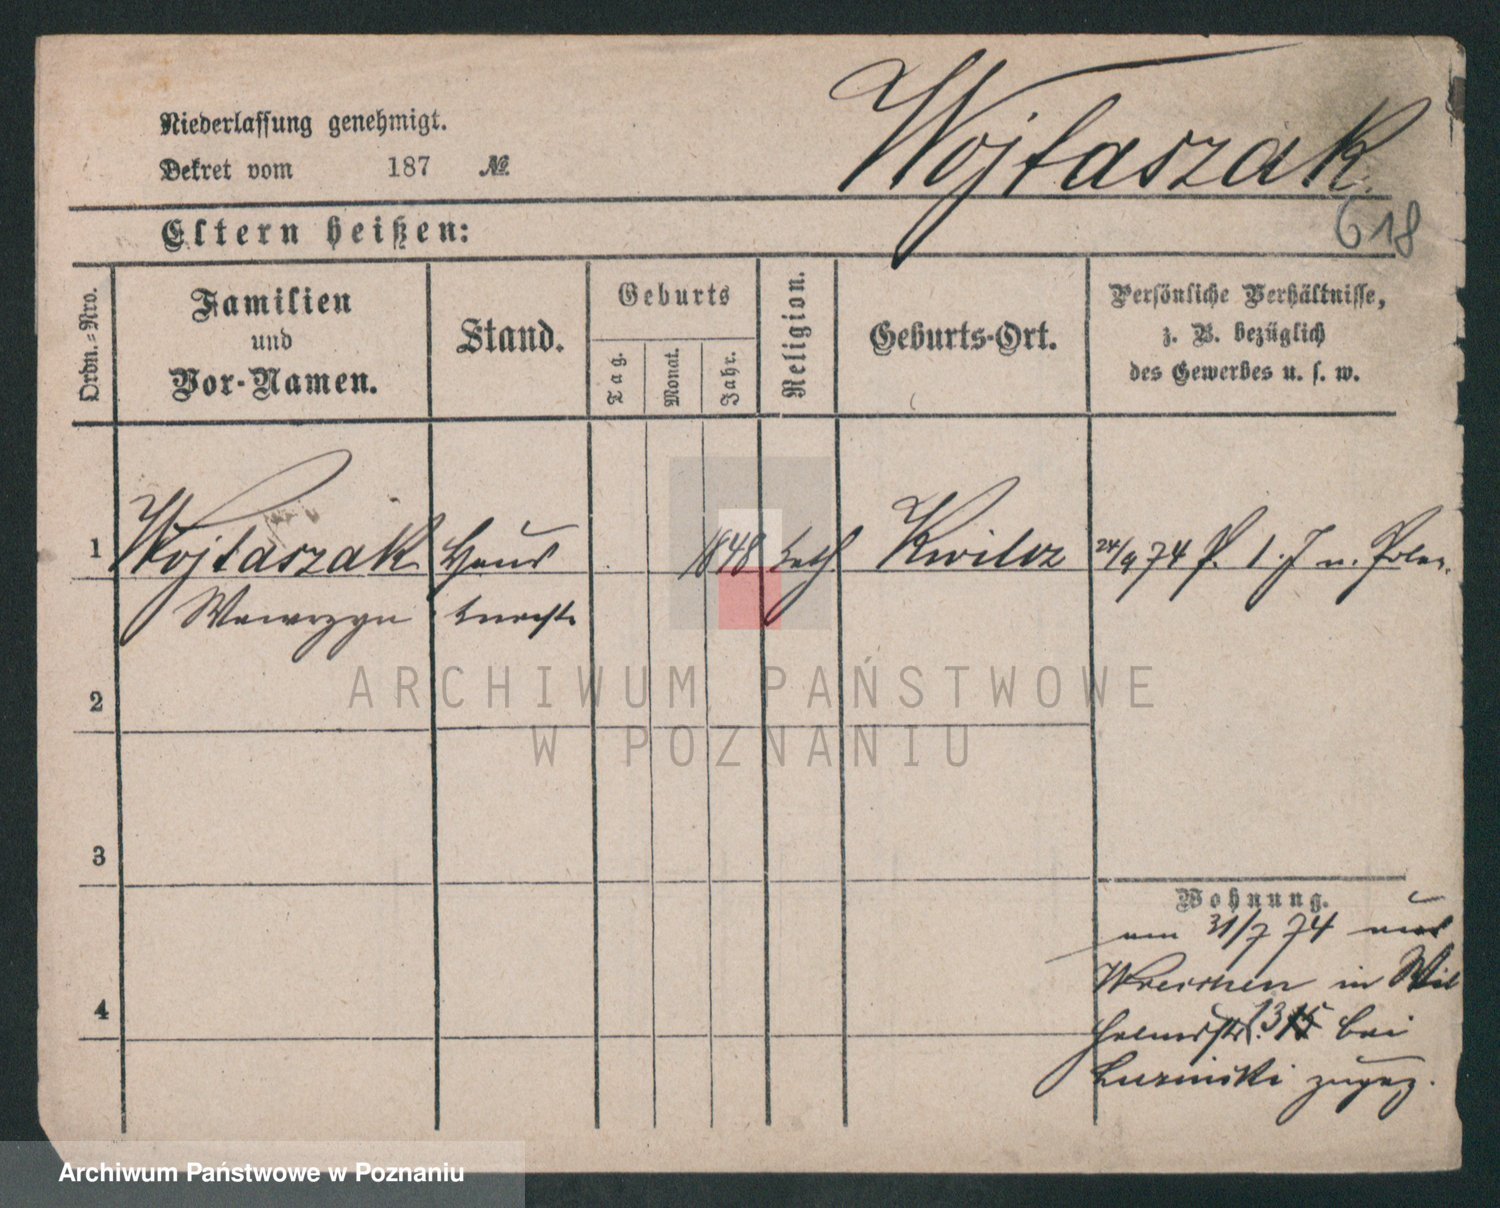 Wojtaszak.
Niederlassung genehmigt.
Dekret vom 187 №
618
Eltern heißen:
Ordn.-Nro.
Familien
und
Vor-Namen.
Stand.
Geburts
Tag.
Monat.
Jahr.
Religion.
Geburts-Ort.
Persönliche Verhältnisse,
z. B. bezüglich
des Gewerbes u. s. w.
1 Wojtaszak Haus 1848 kath Kwilcz 24/9 74 P. 1. J u. Polen.
Wawrzyn knecht
2
3
4
Wohnung.
am 31/7 74 aus
Wreschen in Wil
helmsstr. 13 bei
zugez.
ARCHIWUM PAŃSTWOWE
W POZNANIU
Archiwum Państwowe w Poznaniu